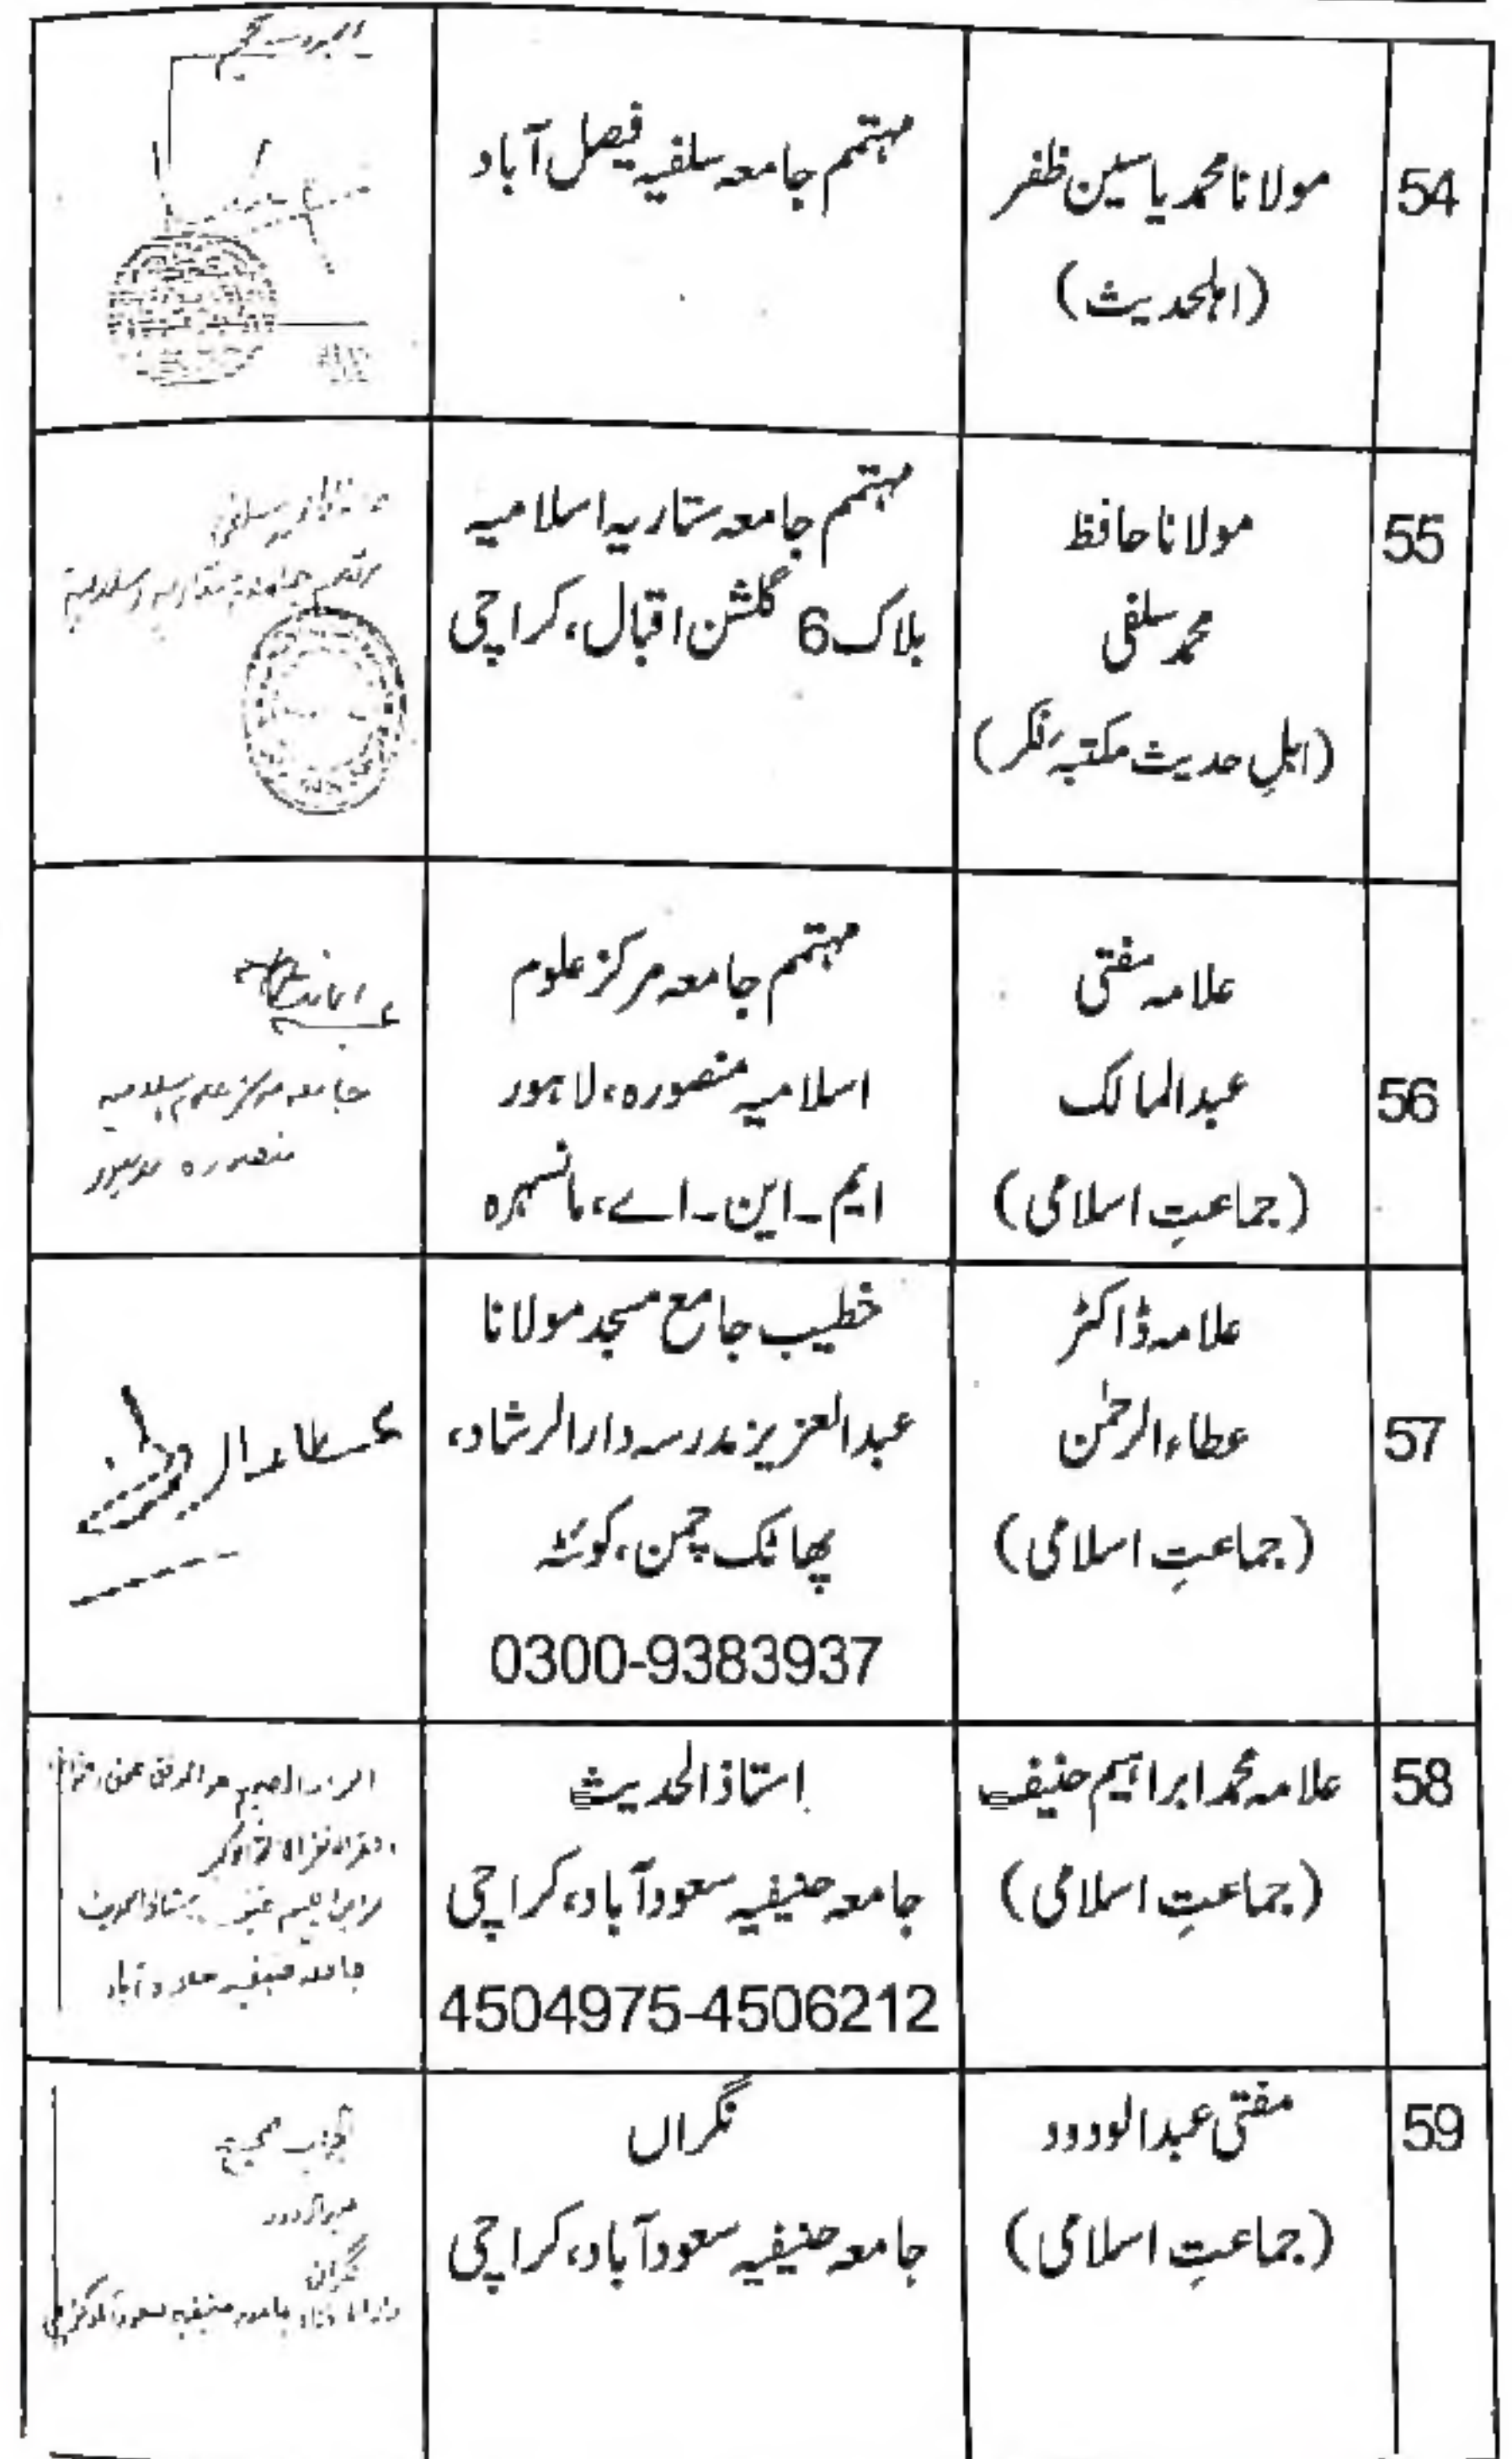 54
مولانا محمد یاسین ظفر
(اہلحدیث)
مہتمم جامعہ سلفیہ فیصل آباد
55
مولانا حافظ
محمد سلفی
(اہلِ حدیث مکتبہ ٔفکر)
مہتمم جامعہ ستاریہ اسلامیہ
بلاک 6 گلشن اقبال، کراچی
سلفی
56
علامہ مفتی
عبدالمالک
(جماعتِ اسلامی)
مہتمم جامعہ مرکز علوم
اسلامیہ منصورہ، لاہور
ایم۔این۔اے، مانسہرہ
جامعہ مرکز علوم اسلامیہ
منصورہ لاہور
57
علامہ ڈاکٹر
عطاء الرحمٰن
(جماعتِ اسلامی)
خطیب جامع مسجد مولانا
عبدالعزیز مدرسہ دارالرشاد،
پھاٹک چمن، کوئٹہ
0300-9383937
عطاء الرحمٰن
58
علامہ محمد ابراہیم حنیف
(جماعتِ اسلامی)
استاذ الحدیث
جامعہ حنیفیہ سعود آباد، کراچی
4504975-4506212
جامعہ حنیفیہ سعود آباد
59
مفتی عبدالودود
(جماعتِ اسلامی)
نگراں
جامعہ حنیفیہ سعود آباد، کراچی
الجواب صحیح
عبدالودود
نگران
جامعہ حنیفیہ سعود آباد کراچی